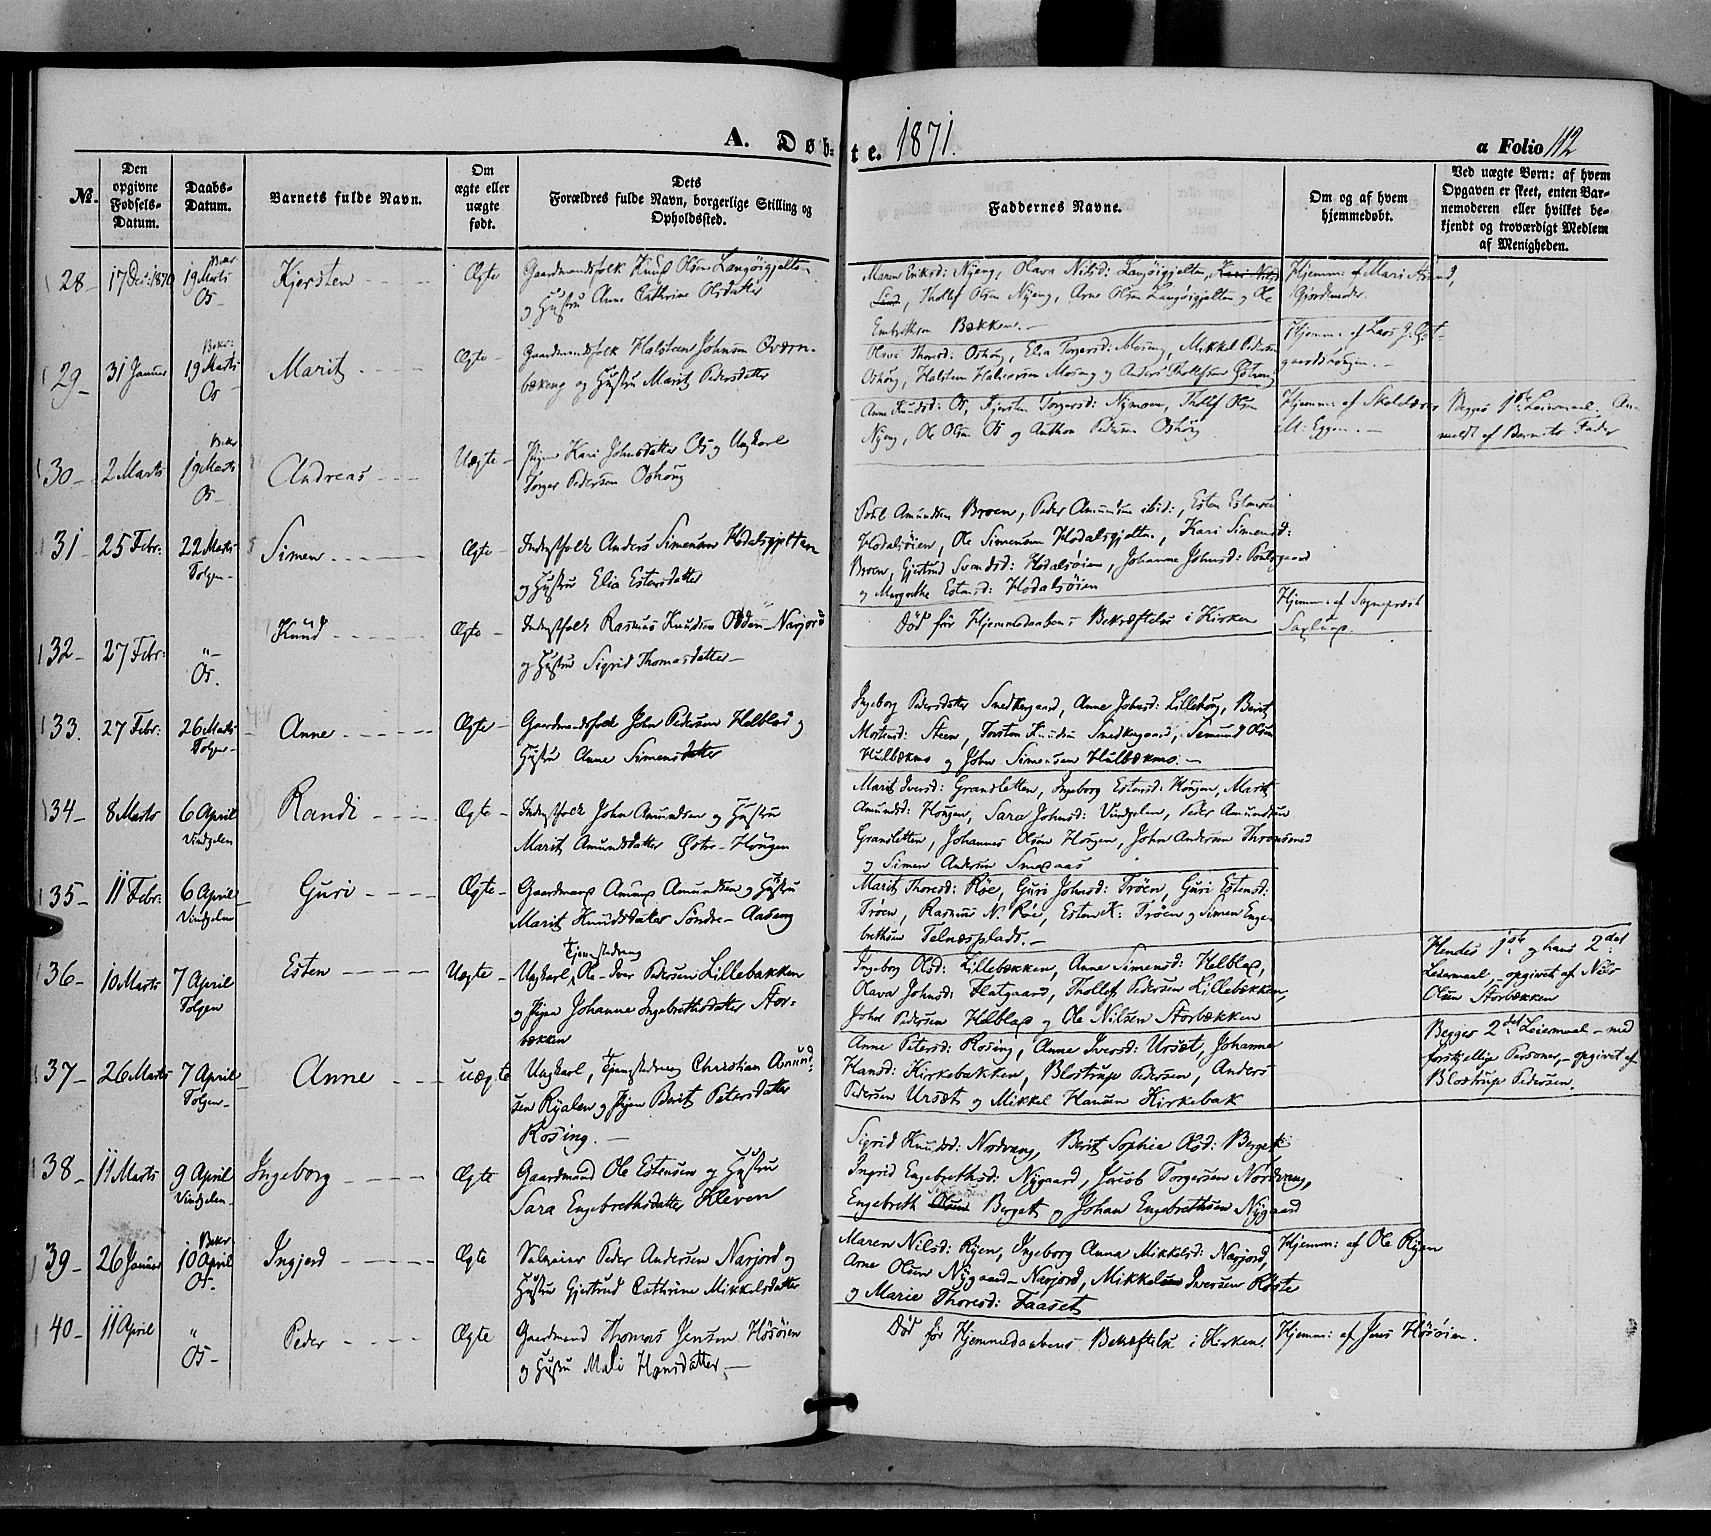 A. Døb-
te. 1871.
a Folio 112
№.
Den opgivne Fødsels-Datum.
Daabs-Datum.
Barnets fulde Navn.
Om ægte eller uægte født.
Dets Forældres fulde Navn, borgerlige Stilling og Opholdssted.
Faddernes Navne.
Om og af hvem hjemmedøbt.
Ved uægte Børn: af hvem Opgaven er skeet, enten Bar-nemoderen eller hvilket be-kjendt og troværdigt Medlem af Menigheden.
28 17 Dec: 1870 Bekr 19 Marts Os Kjersten Ægte
Gaardmandsfolk Knud Olsen Langøigjelten
og Hustru Anne Cathrine Olsdatter
Maren Eriksd: Nyeng, Olava Nilsd: Langøigjelten, Kari Nilsd
Lund, Thollef Olsen Nyeng, Arne Olsen Langøigjelten og Ole
Embrethsen Bakken.
Hjemm: af Mari
Gjordemoder
29 31 Januar Bekr: 19 Marts Os Marit Ægte
Gaardmandsfolk Halsteen Johnsen Qværn-
bækeng og Hustru Marit Pedersdatter
Olava Thoresd: Oshøug, Elia Torgersd: Moseng, Mikkel Pedersen
Oshøug, Halsten Halvorsen Moseng og Anders Thollefsen
Hjemm: af Lars J: Øst-
gaardshougen.
30 2 Marts Bekr 19 Marts Os Andreas Uægte
Pigen Kari Johnsdatter Os og Ungkarl
Torger Pedersen Oshøug
Anne Knudsd: Os, Kjersten Torgersd: Nymoen, Thollef Olsen
Nyeng, Ole Olsen Os og Anthon Pedersen Oshøug
Hjemm: af Skolelærer
M: Eggen.
Begges 1ste Leiermaal. An-
meldt af Barnets Fader
31 25 Febr: 22 Marts Tolgen Simen Ægte
Inderstfolk Anders Simensen Hodalsgjelten
og Hustru Elia Estensdatter
Povel Amundsen Broen, Peder Amundsen ibid:, Esten Estensen
Hodalsøien, Ole Simensen Hodalsgjelten, Kari Simensd:
Broen, Gjertrud Svendsd: Hodalsøien, Johanne Johnsd:
og Margrethe Estensd: Hodalsøien
32 27 Febr: " Os. Knud Ægte
Inderstfolk Rasmus Knudsen Odden Narjord
og Hustru Sigrid Thomasdatter
Død før Hjemmedaabens Bekræftelse i Kirken
Hjemm: af Sognepræst
Saxlund.
33. 27 Febr: 26 Marts Tolgen Anne Ægte
Gaardmandsfolk John Pedersen Helblad og
Hustru Anne Simensdatter
Ingeborg Pedersdatter Smedkergaard, Anne Johnsd: Lillebøug, Berit
Mortensd: Steen, Torsten Knudsen Smedkergaard, Semund Olsen
Hulbækmo og John Simensen Hulbækmo.
34 8 Marts 6 April Vindgelen Randi Ægte
Inderstfolk John Amundsen og Hustru
Marit Amundsdatter Østre-Hougen
Marit Iversd: Gransletten, Ingeborg Estensd: Hougen, Marit
Amundsd: Hougen, Sara Johnsd: Vindgelen, Peder Amundsen
Gransletten, Johannes Olsen Hougen, John Andersen Thronsmed
og Simen Andersen Smedaas
35 11 Febr: 6 April Vindgelen Guri Ægte
Gaardmand Amund Amundsen og Hustru
Marit Knudsdatter Søndre-Aaseng
Marit Thoresd: Røe, Guri Johnsd: Trøen, Guri Estensd:
Trøen, Rasmus N. Røe, Esten K: Trøen og Simen Enge-
brethsen Telnæsplads.
36 10 Marts 7 April Tolgen Esten Uægte
Ungkarl, Tjenestedreng Ole Iver Pedersen Lillebakken
og Pigen Johanne Ingebrethsdatter Stor-
bækken
Ingeborg Olsd: Lillebækken, Anne Simensd: Helblad,
Olava Johnsd: Flatgaard, Thollef Pedersen Lillebækken,
John Pedersen Helblad og Ole Nilsen Storbækken
Hendes 1ste og hans 2det
Leiermaal, opgivet af Nils
Olsen Storbækken
37 26 Marts 7 April Tolgen Anne uægte
Ungkarl, Tjenestedreng Christian Amund-
sen Ryalen og Pigen Berit Petersdatter
Kosing.
Anne Petersd: Kosing, Anne Iversd: Ursæt, Johanne
Hansd: Kirkebakken, Blostrup Pedersen, Anders
Pedersen Ursæt og Mikkel Hansen Kirkebak
Begges 2det Leiermaal - med
forskjellige Personer, - opgivet af
Blostrup Pedersen.
38 11 Marts 9 April Vindgelen Ingeborg Ægte
Gaardmand Ole Estensen og Hustru
Sara Engebrethsdatter Kleven
Sigrid Knudsd: Nordvang, Berit Sophie Olsd: Berget
Ingrid Engebrethsd: Nygaard, Jacob Torgersen Nordvang,
Engebreth Olsen Berget og Johan Engebrethsen Nygaard
39 26 Januar Bekr 10 April Os. Ingjerd Ægte
Selveier Peder Andersen Narjord og
Hustru Gjertrud Cathrine Mikkelsdatter
Maren Nilsd: Ryen, Ingeborg Anna Mikkelsd: Narjord,
Arne Olsen Nygaard-Narjord, Mikkel Iversen Røste
og Marie Thoresd: Faaset
Hjemm: af Ole Ryen
40 11 April " Os Peder Ægte
Gaardmand Thomas Jensen Høsøien
og Hustru Mali Hansdatter
Død før Hjemmedaabens Bekræftelse i Kirken.
Hjemm: af Jens Høsøien.